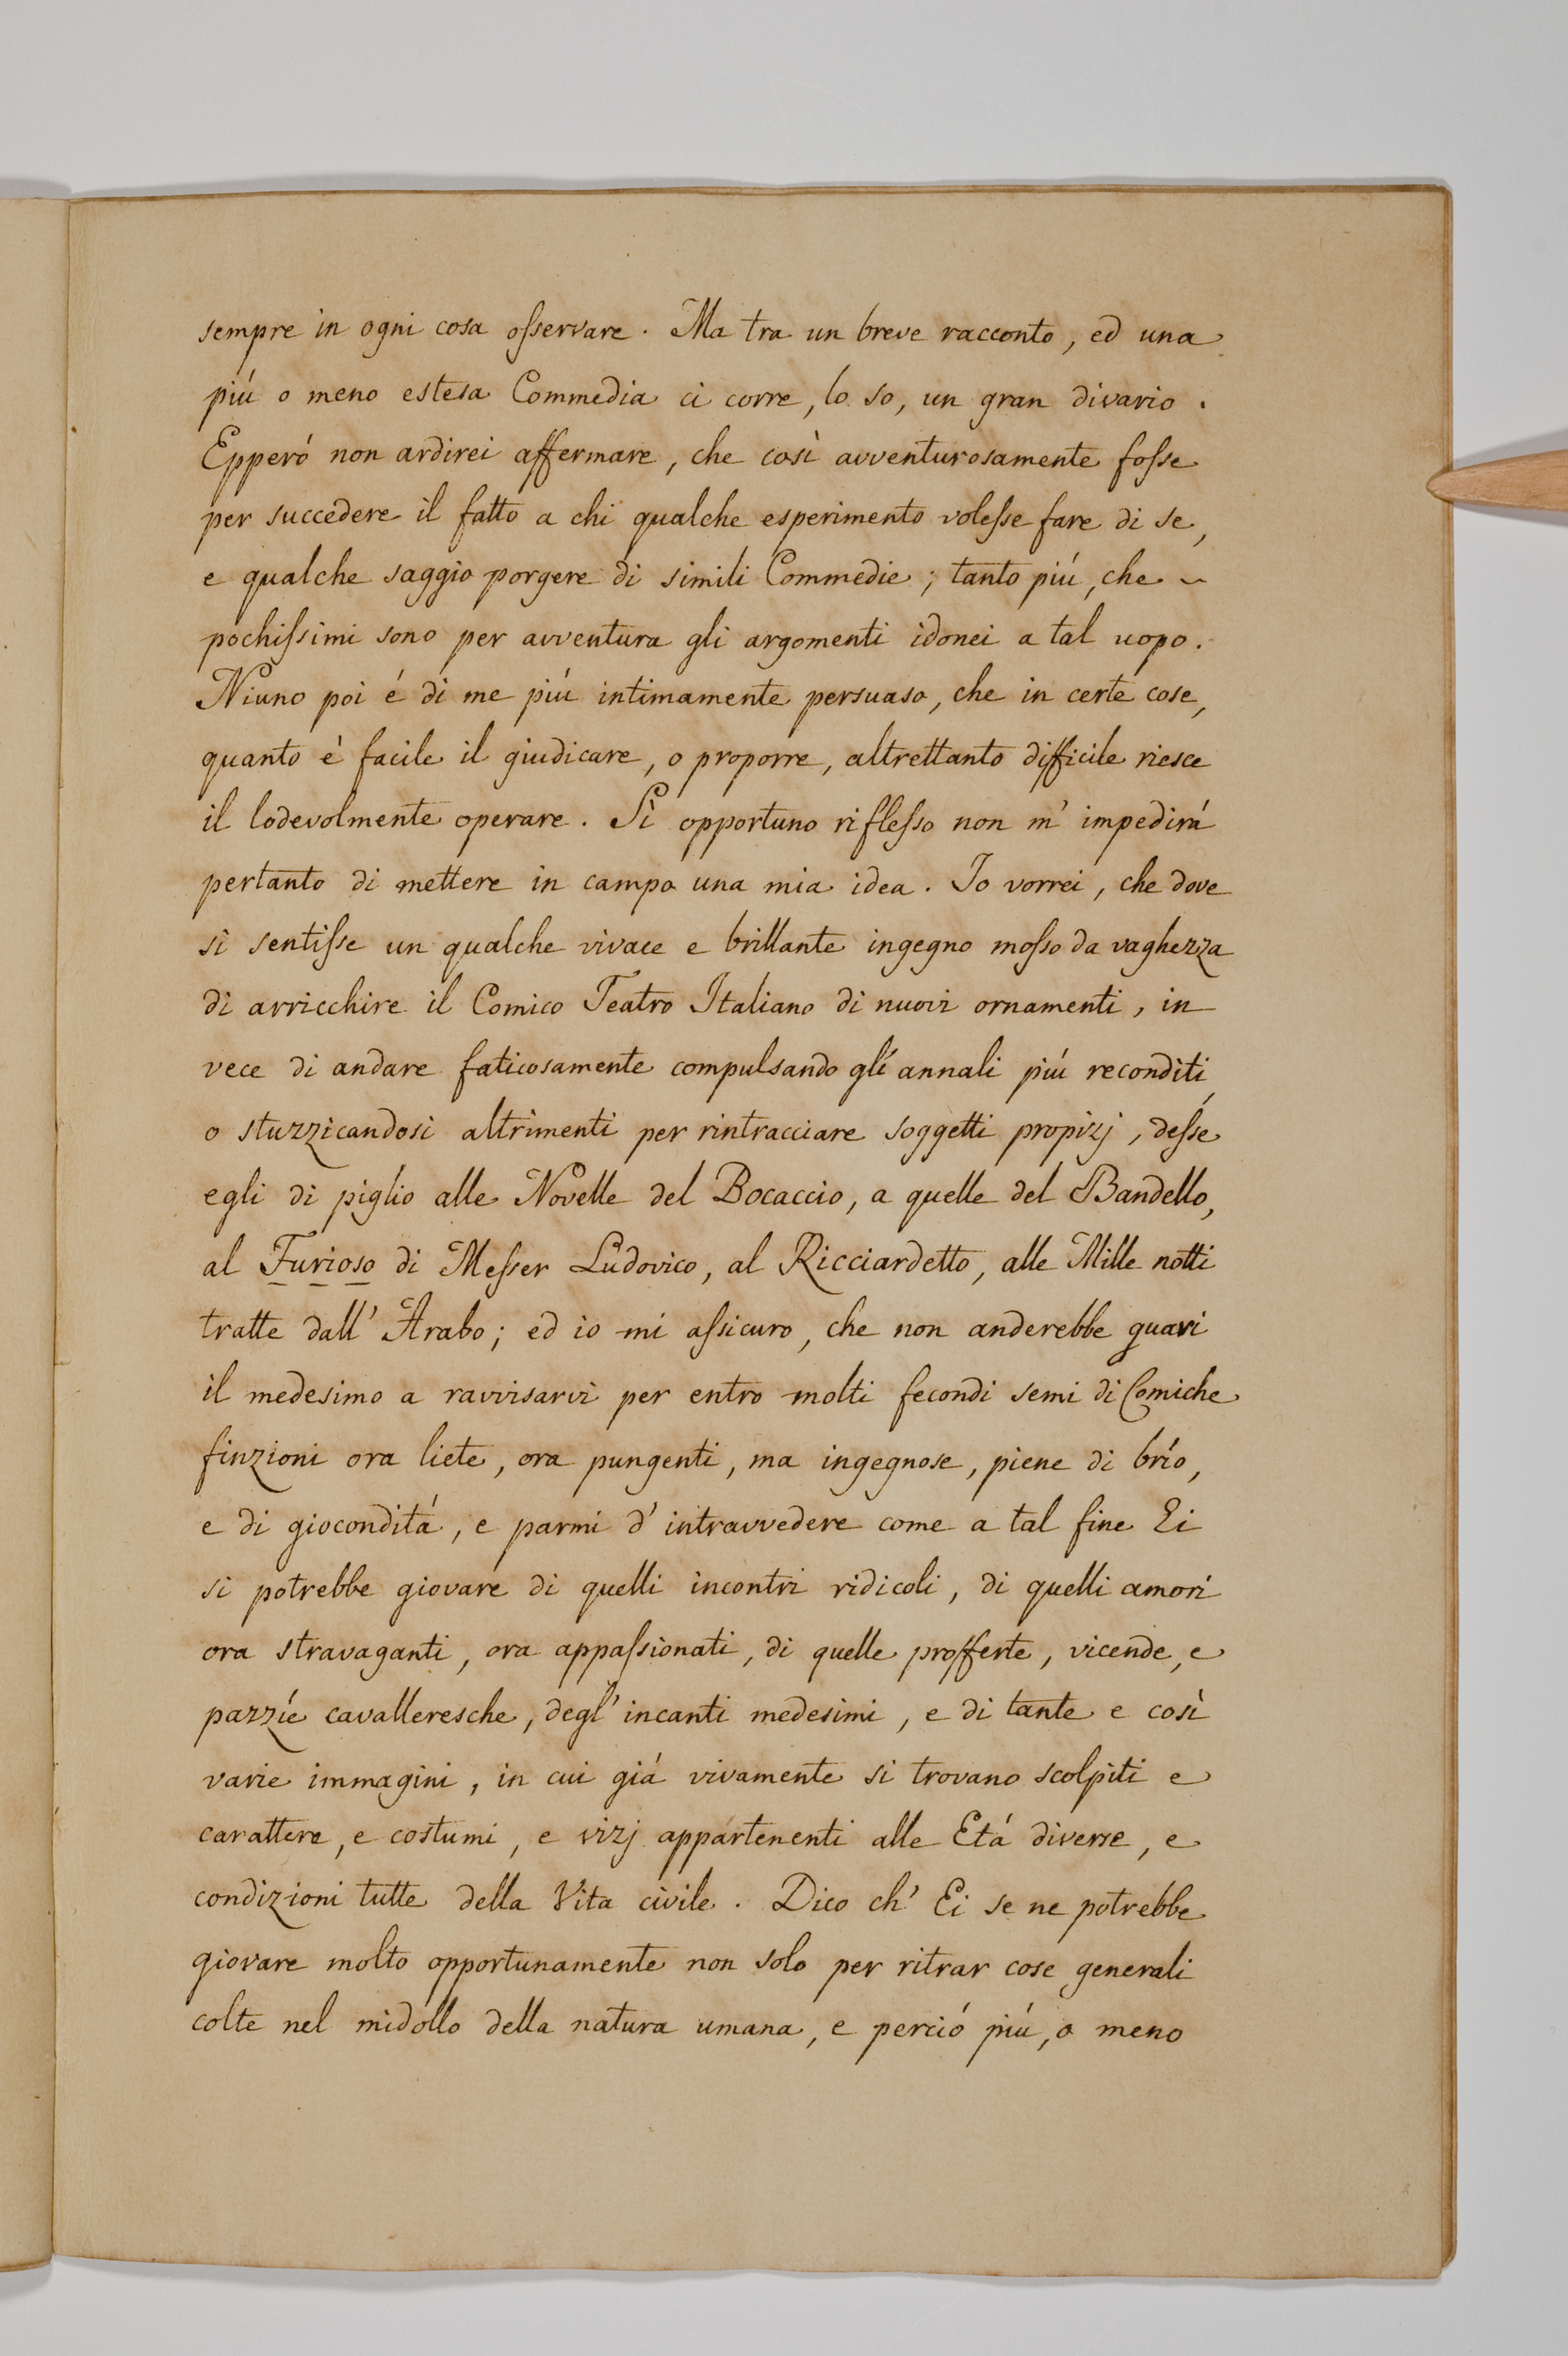 sempre in ogni cosa oſservare. Ma tra un breve racconto, ed una
piú o meno estesa Commedia ci corre, lo so, un gran divario.
Epperó non ardirei affermare, che così avventurosamente foſse
per succedere il fatto a chi qualche esperimento voleſse fare di se,
e qualche saggio porgere di simili Commedie; tanto piú, che ~
pochiſsimi sono per avventura gli argomenti idonei a tal uopo.
Niuno poi é di me piú intimamente persuaso, che in certe cose,
quanto è facile il giudicare, o proporre, altrettanto difficile riesce
il lodevolmente operare. Sì opportuno rifleſso non m' impedirá
pertanto di mettere in campo una mia idea. Io vorrei, che dove
si sentiſse un qualche vivace e brillante ingegno moſso da vaghezza
di arricchire il Comico Teatro Italiano di nuovi ornamenti, in
vece di andare faticosamente compulsando gli annali piú reconditi,
o stuzzicandosi altrimenti per rintracciare soggetti propizj, deſse
egli di piglio alle Novelle del Bocaccio, a quelle del Bandello,
al Furioso di Meſser Ludovico, al Ricciardetto, alle Mille notti
tratte dall' Arabo; ed io mi aſsicuro, che non anderebbe guari
il medesimo a ravvisarvi per entro molti fecondi semi di Comiche
finzioni ora liete, ora pungenti, ma ingegnose, piene di brío,
e di giocondità, e parmi d' intravvedere come a tal fine Ei
si potrebbe giovare di quelli incontri ridicoli, di quelli amori
ora stravaganti, ora appaſsionati, di quelle profferte, vicende, e
pazzíe cavalleresche, degl' incanti medesimi, e di tante e così
varie immagini, in cui giá vivamente si trovano scolpiti e
carattere, e costumi, e vizj appartenenti alle Etá diverse, e
condizioni tutte della Vita civile. Dico ch' Ei se ne potrebbe
giovare molto opportunamente non solo per ritrar cose generali
colte nel midollo della natura umana, e perció piú, o meno